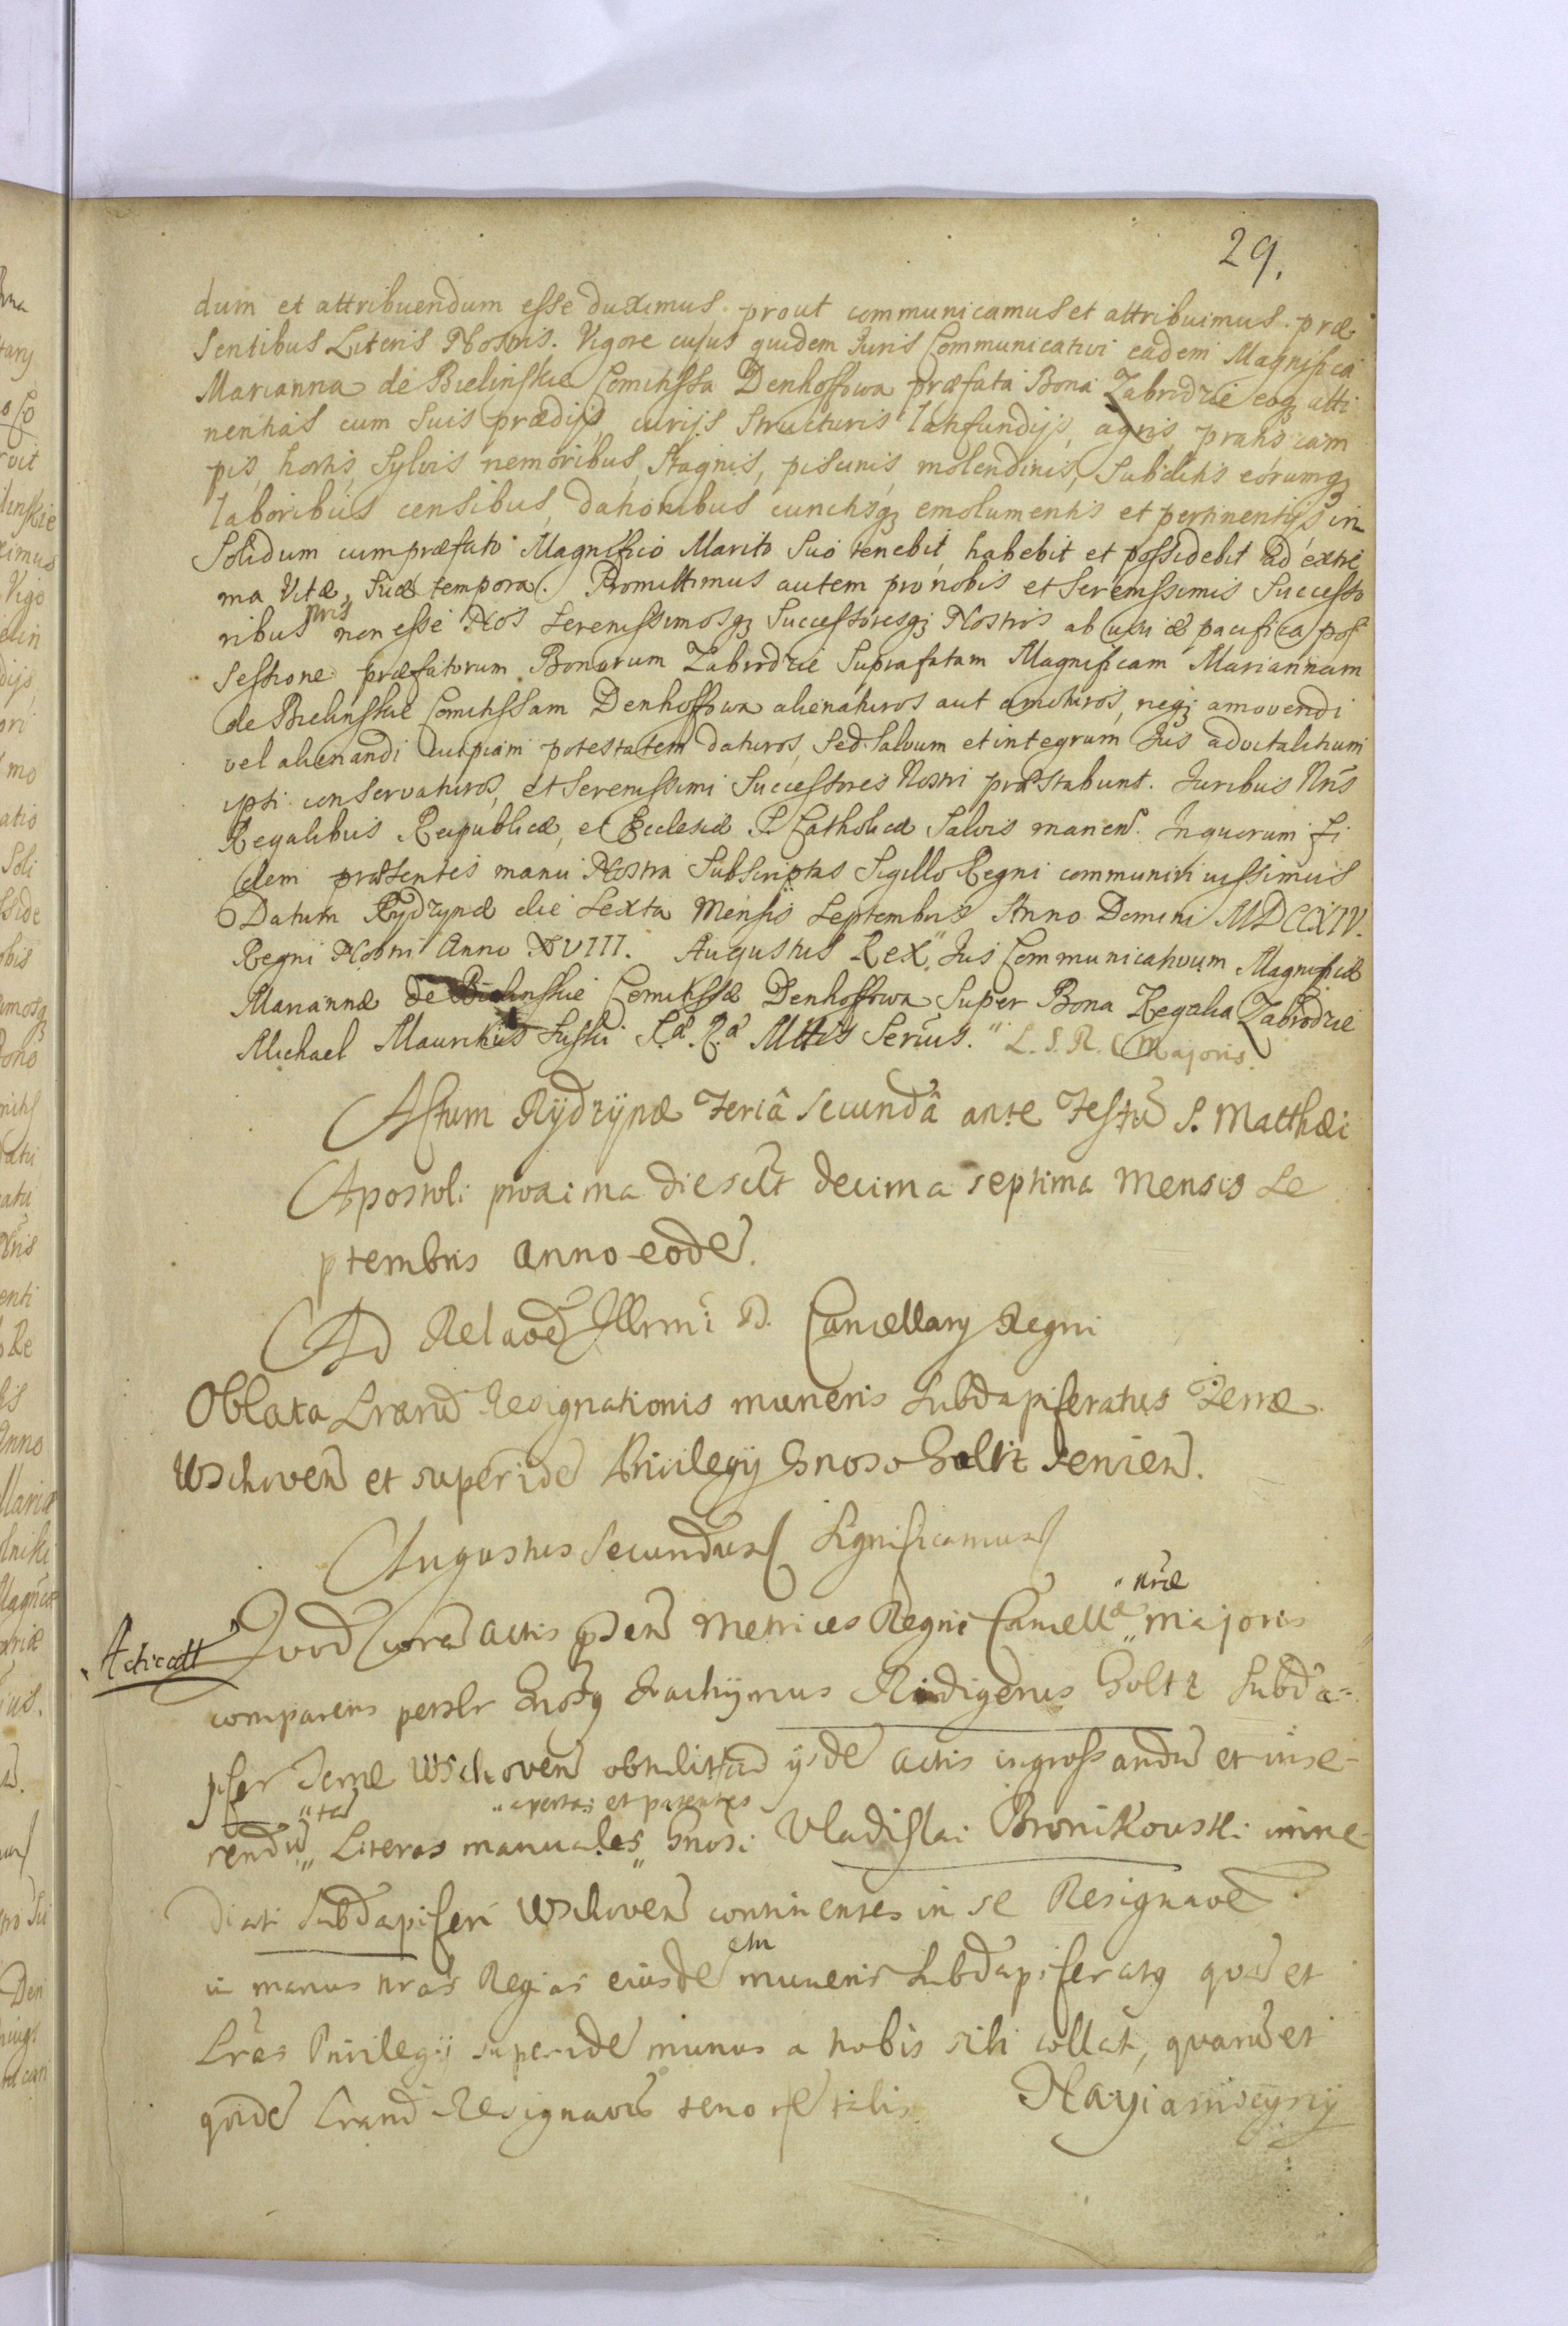 29.
dum et attribuendum esse duximus. prout communicamus et attribuimus. præ
sentibus Literis Nostris. Vigore cujus quidem Juris Communicativi eadem Magnifica
Marianna de Bielinskie Comitissa Denhoffowa præfata Bona Zabrodzie eoq; atti
nentias cum suis prædijs, curijs structuris latifundijs, agris, pratis, cam
pis, hortis, sylvis, nemoribus, stagnis, piscinis, molendinis, subditis eorumq;
laboribus censibus, dationibus cunctisq; emolumentis et pertinentijs in
solidum cum præfato Magnifico Marito suo tenebit, habebit et possidebit ad extre
ma Vitæ, suæ tempora. Promittimus autem pro nobis et Serenissimis Successo
ribus nris non esse Nos Serenissimosq; Successoresq; Nostros ab usu & pacifica pos
sessione præfatorum Bonorum Zabrodzie suprafatam Magnificam Mariannam
de Bielinskie Comitissam Denhoffowa alienaturos aut amoturos, neq; amovendi
vel alienandi cuipiam potestatem daturos, sed salvum et integrum Jus advitalitium
ipsi conservaturos, et Serenissimi Successores Nostri præstabunt. Juribus Nris
Regalibus Reipublicæ, et Ecclesiæ S. Catholicæ salvis manen. In quorum fi
dem præsentes manu Nostra subscriptas Sigillo Regni communiri jussimus
Datum Rydzynæ die sexta Mensis Septembris Anno Domini MDCCXIV.
Regni Nostri Anno XVIII. Augustus Rex. Jus Communicativum Magnificæ
Mariannæ de Bielinskie Comitissæ Denhoffowa super Bona Regalia Zabrodzie
Michael Mauritius Suski S.æ R.æ Mttis Serius. L. S. R. C Majoris.
Actum Rydzynæ Feria secunda ante Festu S. Matthæi
Apostoli proxima die sclt decima septima Mensis Se
ptembris anno eode.
Ad Relaoe Illrmi D. Cancellary Regni
Oblata Lraru Resignationis muneris Subdapiferatus Terræ
Wschoven et superide Privilegij Gnoso Goltz servien.
Augustus Secundus Significamus
Acticatt
Quod cora actis pden Metrices Regni Cancellæ nræ majoris
comparens persltr Gnosq Joachymus Rüdigerus Goltz Subda=
pifer Terræ Wschoven obtulit ad ijsde actis ingrossandu et inse-
rendu Literas manuales apertas et patentes Gnosi Vladislai Bronikowski imme-
diati Subdapiferi Wschoven continentes in se Resignaoe
in manus nras Regias eiusde muneris Subdapiferatq qua et
Lras Privilegij superide munus a nobis sibi collati, quaru et
qide Lraru Resignaois tenor e talis Nayiasnieyszy